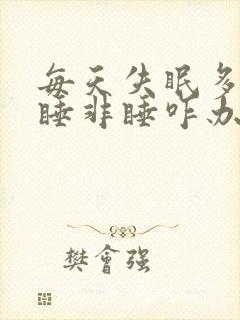 每天失眠多
睡非睡咋办
樊會强